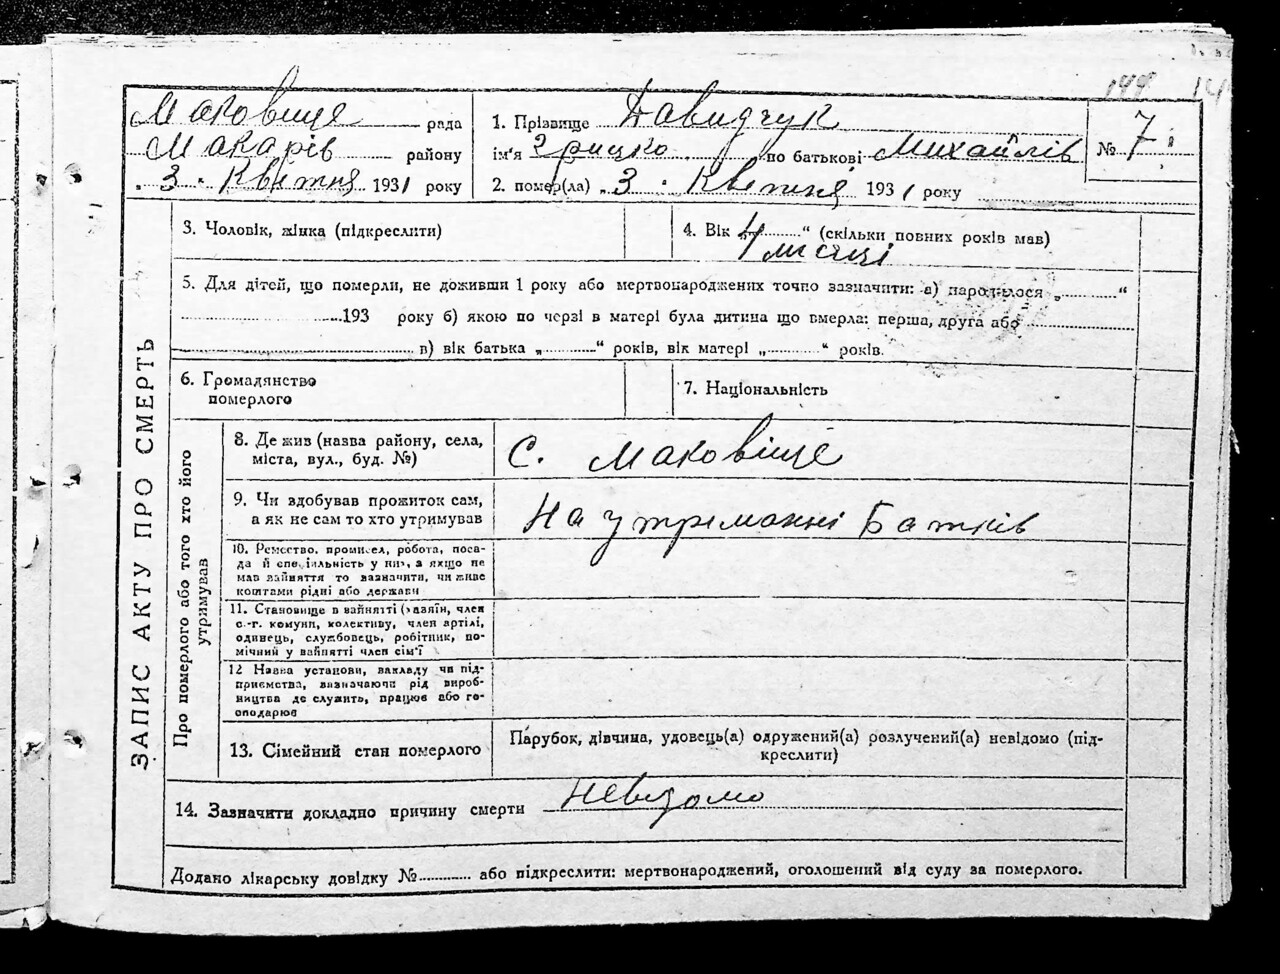 144 14
Маковище рада
Макарів району
3. Квітня 1931 року
1. Прізвище Давидчук
ім'я Грицко по батькові Михайлів
2. помер(ла) „ 3. Квітня 1931 року
№ 7
ЗАПИС АКТУ ПРО СМЕРТЬ
3. Чоловік, жінка (підкреслити)
4. Вік „ 4 “ (скільки повних років мав)
місяці
5. Для дітей, що померли, не доживши 1 року або мертвонароджених точно зазначити: а) народилося „ “
193 року б) якою по черзі в матері була дитина що вмерла: перша, друга або
в) вік батька „ “ років, вік матері „ “ років.
6. Громадянство
померлого
7. Національність
Про померлого або того хто його
утримував
8. Де жив (назва району, села,
міста, вул., буд. №)
с. Маковище
9. Чи здобував прожиток сам,
а як не сам то хто утримував
На утріманні Батків
10. Ремество, промисел, робота, поса-
да й спеціяльність у ній, а якщо не
мав зайняття то зазначити, чи живе
коштами рідні або держави
11. Становище в зайнятті (хазяїн, член
с.-г. комуни, колективу, член артілі,
одинець, службовець, робітник, по-
мічний у зайнятті член сім'ї
12 Назва установи, закладу чи під-
приємства, визначаючи рід вироб-
ництва де служить, працює або го-
сподарює
13. Сімейний стан померлого
Парубок, дівчина, удовець(а) одружений(а) розлучений(а) невідомо (під-
креслити)
14. Зазначити докладно причину смерти невідомо
Додано лікарську довідку № або підкреслити: мертвонароджений, оголошений від суду за померлого.